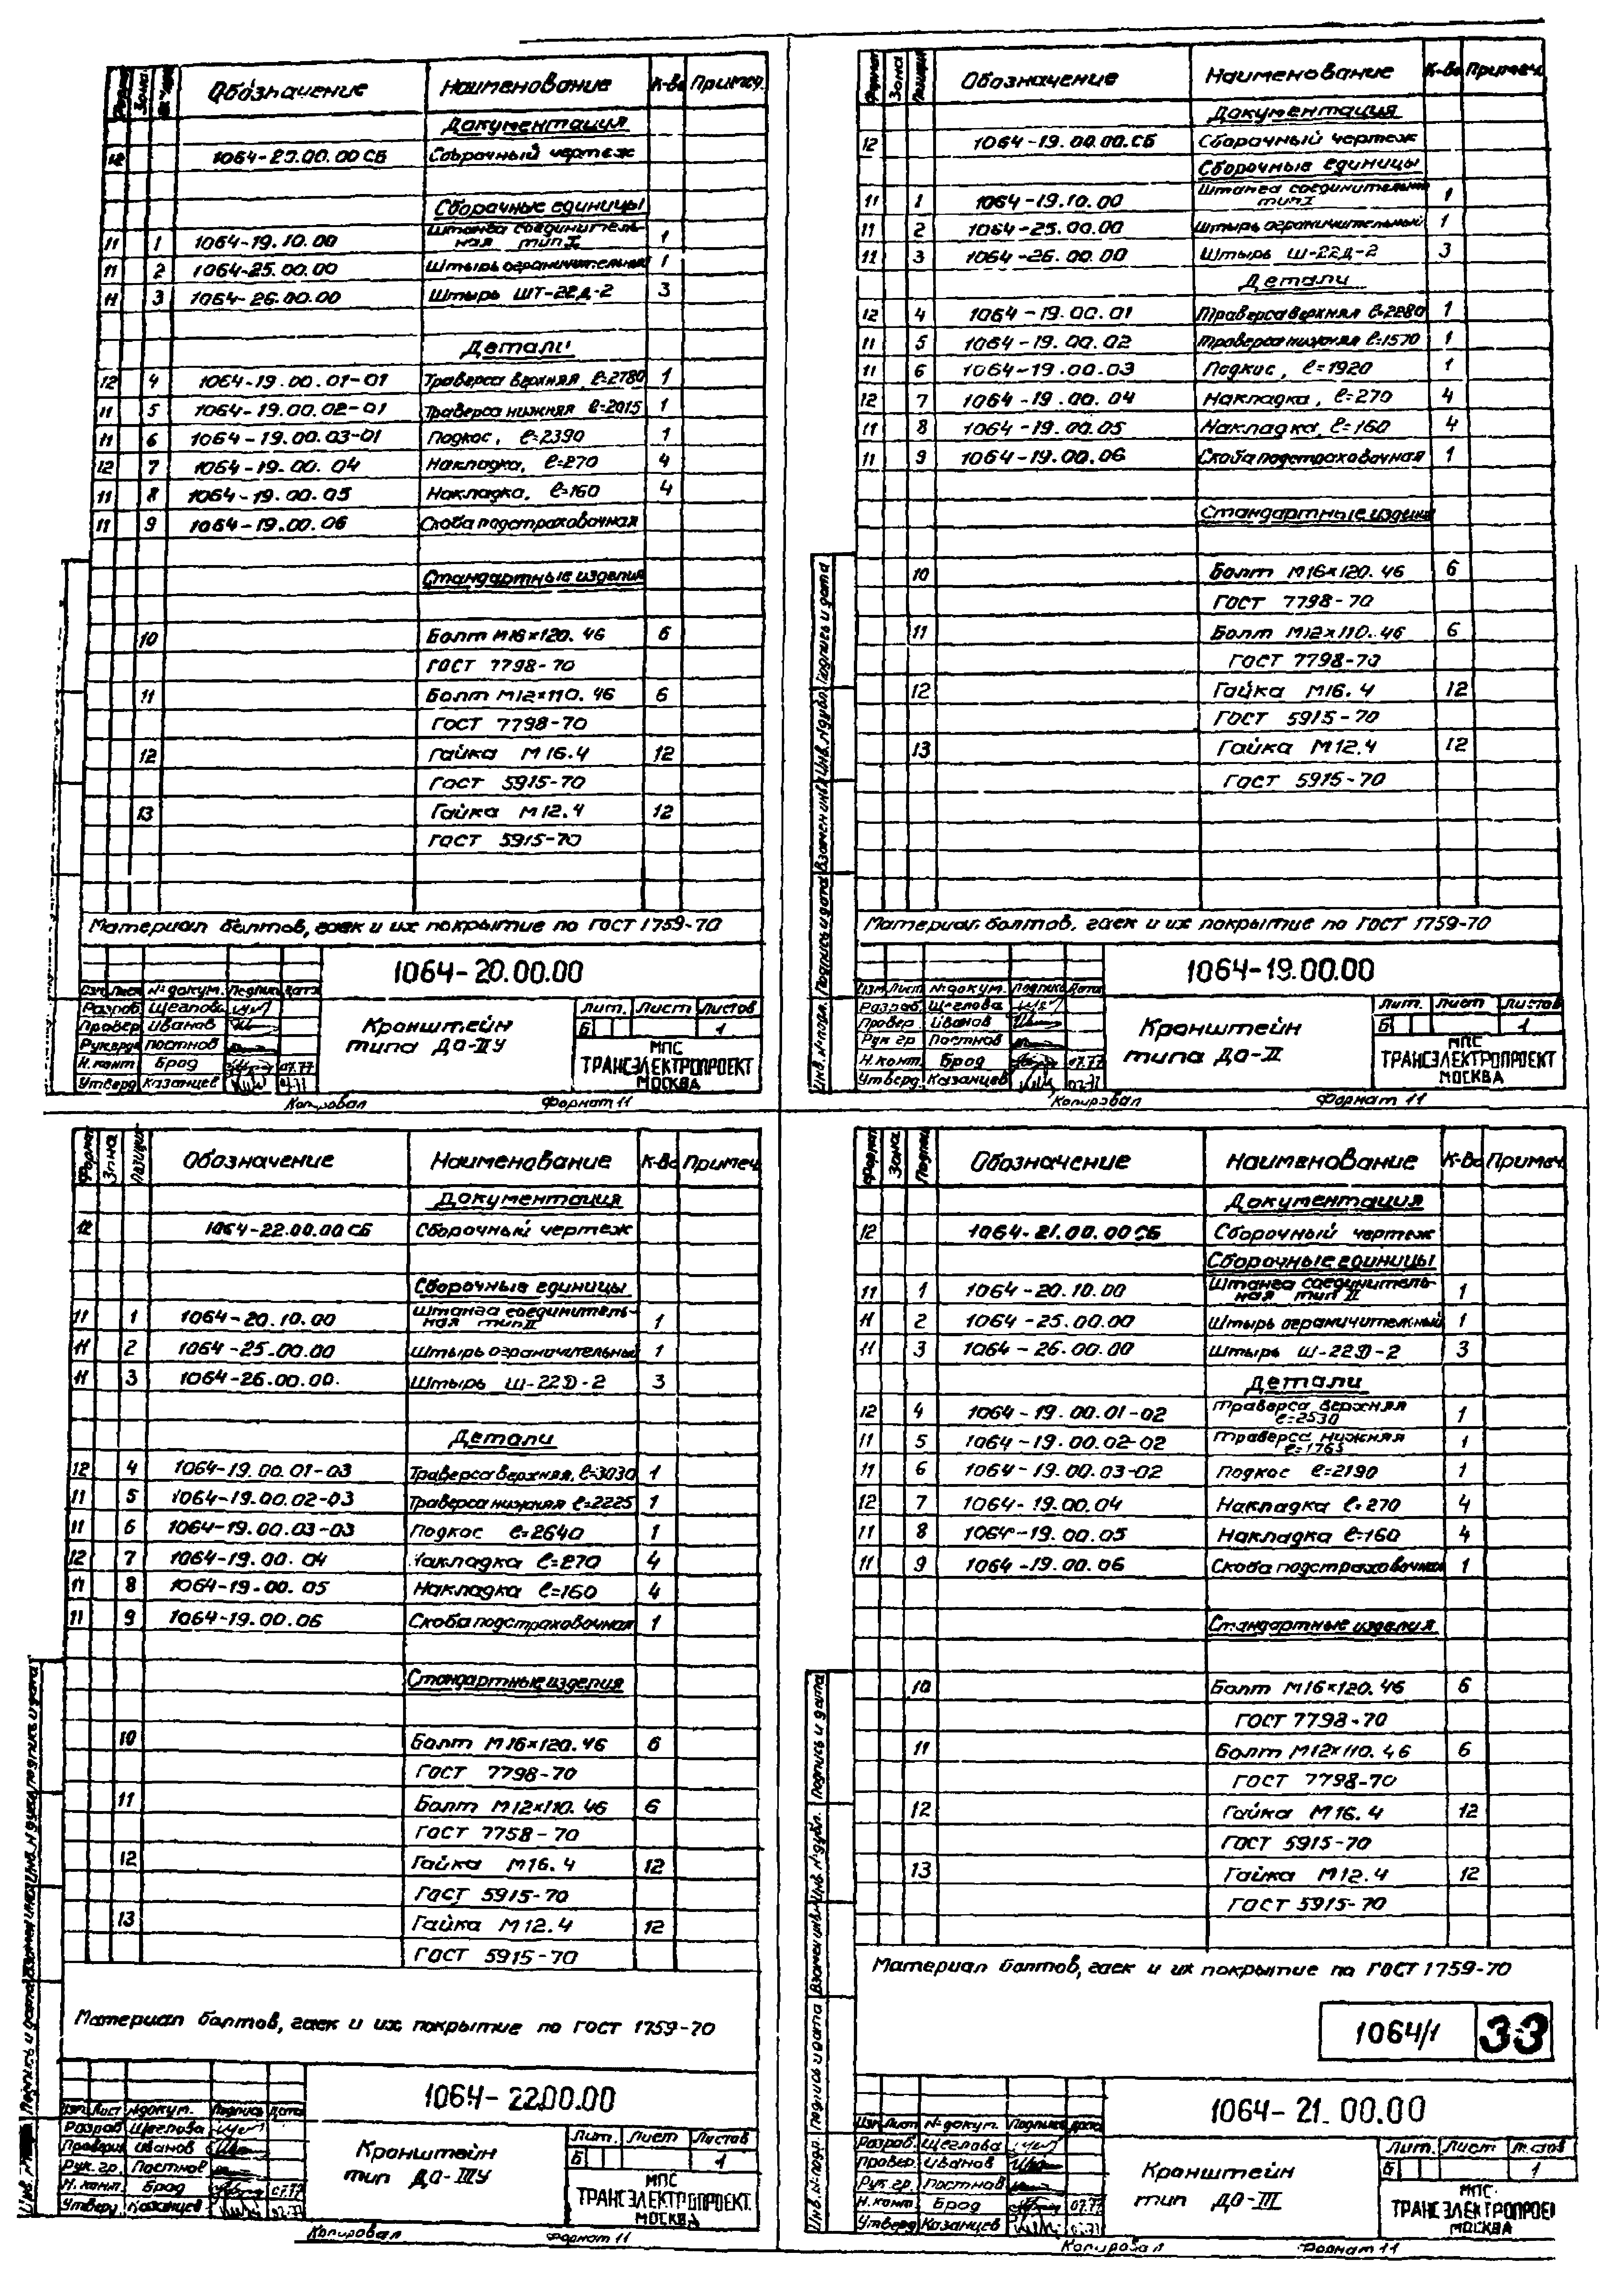 Формат Зона Обозначение Наименование К-во Примеч.
Документация
12 1064-20.00.00 СБ Сборочный чертеж
Сборочные единицы
11 1 1064-19.10.00 Штанга соединитель- 1
ная тип I
11 2 1064-25.00.00 Штырь ограничительный 1
11 3 1064-26.00.00 Штырь ШТ-22Д-2 3
Детали
12 4 1064-19.00.01-01 Траверса верхняя, ℓ=2780 1
11 5 1064-19.00.02-01 Траверса нижняя ℓ=2015 1
11 6 1064-19.00.03-01 Подкос, ℓ=2390 1
12 7 1064-19.00.04 Накладка, ℓ=270 4
11 8 1064-19.00.05 Накладка, ℓ=160 4
11 9 1064-19.00.06 Скоба подстраховочная
Стандартные изделия
10 Болт М16×120.46 6
ГОСТ 7798-70
11 Болт М12×110.46 6
ГОСТ 7798-70
12 Гайка М16.4 12
ГОСТ 5915-70
13 Гайка М12.4 12
ГОСТ 5915-70
Материал болтов, гаек и их покрытие по ГОСТ 1759-70
1064-20.00.00
Изм Лист № докум. Подпись Дата
Разраб. Щеглова
Провер Иванов
Рук. гр. Постнов
Н. конт. Брод 07.77
Утверд Казанцев
Кронштейн
типа ДО-IIУ
Лит. Лист Листов
Б 1
МПС
ТРАНСЭЛЕКТРОПРОЕКТ
МОСКВА
Копировал Формат 11
Формат Зона Позиция Обозначение Наименование К-во Примеч.
Документация
12 1064-19.00.00.СБ Сборочный чертеж
Сборочные единицы
11 1 1064-19.10.00 Штанга соединительн 1
тип I
11 2 1064-25.00.00 Штырь ограничительный 1
11 3 1064-26.00.00 Штырь Ш-22Д-2 3
Детали
12 4 1064-19.00.01 Траверса верхняя ℓ=2280 1
11 5 1064-19.00.02 Траверса нижняя ℓ=1570 1
11 6 1064-19.00.03 Подкос, ℓ=1920 1
12 7 1064-19.00.04 Накладка, ℓ=270 4
11 8 1064-19.00.05 Накладка, ℓ=160 4
11 9 1064-19.00.06 Скоба подстраховочная 1
Стандартные издели
10 Болт М16×120.46 6
ГОСТ 7798-70
11 Болт М12×110.46 6
ГОСТ 7798-70
12 Гайка М16.4 12
ГОСТ 5915-70
13 Гайка М12.4 12
ГОСТ 5915-70
Материал болтов, гаек и их покрытие по ГОСТ 1759-70
Инв.№ подл. Подпись и дата Взамен инв. Инв.№дубл. Подпись и дата
1064-19.00.00
Изм Лист № докум. Подпись Дата
Разраб. Щеглова
Провер Иванов
Рук гр Постнов
Н. конт Брод 07.77
Утверд. Казанцев
Кронштейн
типа ДО-II
Лит. Лист Листов
Б 1
МПС
ТРАНСЭЛЕКТРОПРОЕКТ
МОСКВА
Копировал Формат 11
Формат Зона Позиция Обозначение Наименование К-во Примеч.
Документация
12 1064-22.00.00 СБ Сборочный чертеж
Сборочные единицы
11 1 1064-20.10.00 Штанга соединитель- 1
ная тип II
11 2 1064-25.00.00 Штырь ограничительный 1
11 3 1064-26.00.00. Штырь Ш-22Д-2 3
Детали
12 4 1064-19.00.01-03 Траверса верхняя, ℓ=3030 1
11 5 1064-19.00.02-03 Траверса нижняя ℓ=2225 1
11 6 1064-19.00.03-03 Подкос ℓ=2640 1
12 7 1064-19.00.04 Накладка ℓ=270 4
11 8 1064-19.00.05 Накладка ℓ=160 4
11 9 1064-19.00.06 Скоба подстраховочная 1
Стандартные изделия
10 Болт М16×120.46 6
ГОСТ 7798-70
11 Болт М12×110.46 6
ГОСТ 7758-70
12 Гайка М16.4 12
ГОСТ 5915-70
13 Гайка М12.4 12
ГОСТ 5915-70
Материал болтов, гаек и их покрытие по ГОСТ 1759-70
1064-22.00.00
Изм Лист № докум. Подпись Дата
Разраб Щеглова
Проверил Иванов
Рук. гр. Постнов
Н. конт. Брод 07.77
Утверд Казанцев
Кронштейн
тип ДО-IIIУ
Лит. Лист Листов
Б 1
МПС
ТРАНСЭЛЕКТРОПРОЕКТ
МОСКВА
Копировал Формат 11
Формат Зона Обозначение Наименование К-во Примеч.
Документация
12 1064-21.00.00 СБ Сборочный чертеж
Сборочные единицы
11 1 1064-20.10.00 Штанга соединитель- 1
ная тип II
11 2 1064-25.00.00 Штырь ограничительный 1
11 3 1064-26.00.00 Штырь Ш-22Д-2 3
Детали
12 4 1064-19.00.01-02 Траверса верхняя 1
ℓ=2530
11 5 1064-19.00.02-02 Траверса нижняя 1
ℓ=1765
11 6 1064-19.00.03-02 Подкос ℓ=2190 1
12 7 1064-19.00.04 Накладка ℓ=270 4
11 8 1064-19.00.05 Накладка ℓ=160 4
11 9 1064-19.00.06 Скоба подстраховочная 1
Стандартные изделия
10 Болт М16×120.46 6
ГОСТ 7798-70
11 Болт М12×110.46 6
ГОСТ 7798-70
12 Гайка М16.4 12
ГОСТ 5915-70
13 Гайка М12.4 12
ГОСТ 5915-70
Материал болтов, гаек и их покрытие по ГОСТ 1759-70
1064/1 33
Инв.№ подл. Подпись и дата Взамен инв.№ Инв.№дубл. Подпись и дата
1064-21.00.00
Изм Лист № докум. Подпись Дата
Разраб. Щеглова
Провер. Иванов
Рук. гр. Постнов
Н. конт. Брод 07.77
Утверд Казанцев
Кронштейн
тип ДО-III
Лит. Лист
Б 1
МПС
ТРАНСЭЛЕКТРОПРОЕ
МОСКВА
Копировал Формат 11